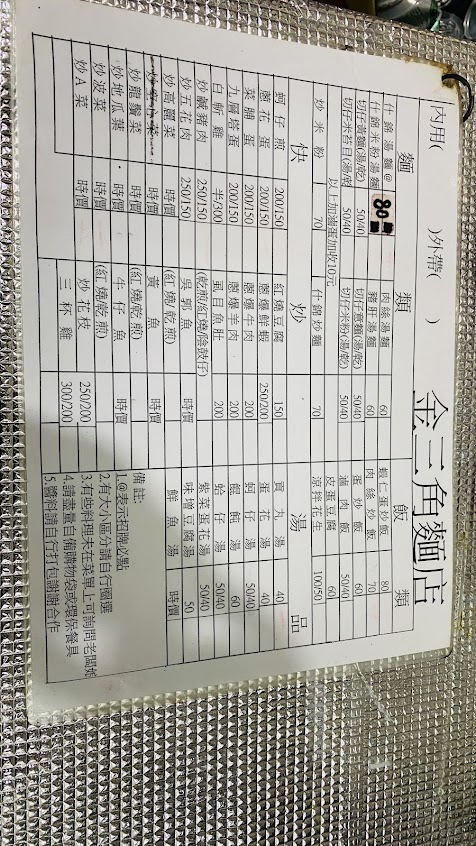 金三角麵店
內用( )外帶( )
麵 類 飯 類
什錦湯麵@ 80 肉絲湯麵 60 蝦仁蛋炒飯 80
什錦米粉湯麵 80 豬肝湯麵 60 肉絲炒飯 70
切仔黃麵(湯/乾) 50/40 切仔意麵(湯/乾) 50/40 蛋炒飯 60
切仔米苔目(湯/乾) 50/40 切仔米粉(湯/乾) 50/40 滷肉飯 50/40
以上加滷蛋加收10元 皮蛋豆腐 60
炒米粉 70 什錦炒麵 70 涼拌花生 100/50
快 炒 湯 品
蚵仔煎 200/150 紅燒豆腐 150 貢丸湯 40
蔥花蛋 200/150 蔥爆鮮蝦 250/200 蛋花湯 40
菜脯蛋 200/150 蔥爆牛肉 200 蚵仔湯 50/40
九層塔蛋 200/150 蔥爆羊肉 200 餛飩湯 60
白斬雞 半/300 虱目魚肚 200 蛤仔湯 50/40
炒鹹豬肉 250/150 (乾煎/紅燒/蔭鼓仔) 紫菜蛋花湯 50/40
炒五花肉 250/150 吳郭魚 時價 味增豆腐湯 50
炒高麗菜 時價 (紅燒/乾煎) 鮮魚湯 時價
時價 黃魚 時價
炒龍鬚菜 時價 (紅燒/乾煎)
炒地瓜葉 時價 牛仔魚 時價
炒菠菜 時價 (紅燒/乾煎)
炒A菜 時價 炒花枝 250/200
三杯雞 300/200
備註:
1.@表示招牌必點
2.有大小區分請自行圈選
3.有些料理未在菜單上可詢問老闆娘
4.請盡量自備購物袋或環保餐具
5.醬料請自行打包謝謝合作